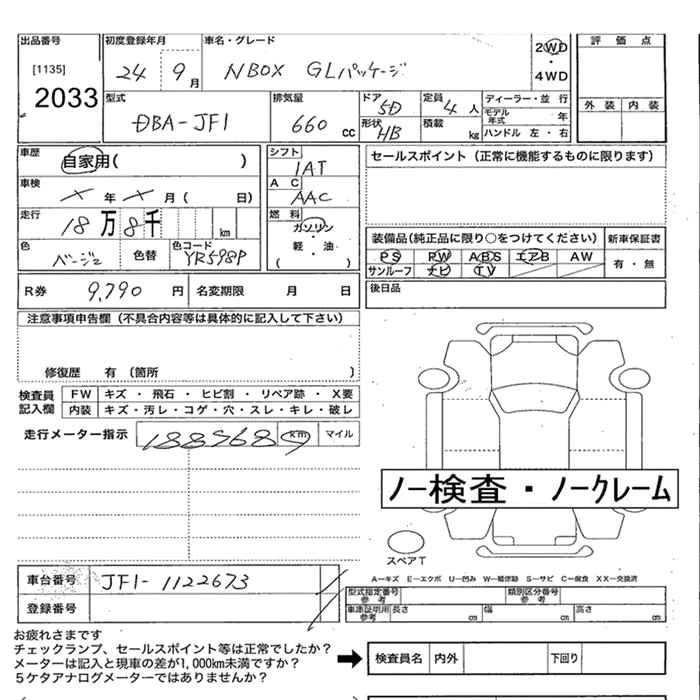 出品番号 初度登録年月 車名・グレード 2WD・4WD 評価点
[1135]
2033
24年 9月 NBOX GLパッケージ
外装 内装
型式 排気量 ドア 定員 ディーラー・並行
DBA-JF1 660 cc 5D 4人
モデル年式 年
形状 積載 ハンドル 左・右
HB kg
車歴 自家用( ) シフト セールスポイント (正常に機能するものに限ります)
1AT
車検 × 年 × 月( 日) AC
AAC
走行 18万8千 km 燃料
ガソリン・軽・油
( )
装備品(純正品に限り○をつけてください) 新車保証書
色 ベージュ 色替 色コード YR598P
PS PW ABS エアB AW 有・無
サンルーフ ナビ TV
R券 9,790 円 名変期限 月 日 後日品
注意事項申告欄 (不具合内容等は具体的に記入して下さい)
修復歴 有 (箇所 )
検査員記入欄 FW キズ・飛石・ヒビ割・リペア跡・X要
内装 キズ・汚レ・コゲ・穴・スレ・キレ・破レ
走行メーター指示 188568 km マイル
ノー検査・ノークレーム
スペアT
A―キズ E―エクボ U―凹み W―補修跡 S―サビ C―腐食 XX―交換済
車台番号 JF1-1122673
型式指定番号 参考 類別区分番号 参考
登録番号
車庫証明用 参考 長さ cm 幅 cm 高さ cm
お疲れさまです
チェックランプ、セールスポイント等は正常でしたか?
メーターは記入と現車の差が1,000km未満ですか?
5ケタアナログメーターではありませんか?
検査員名 内外 下回り